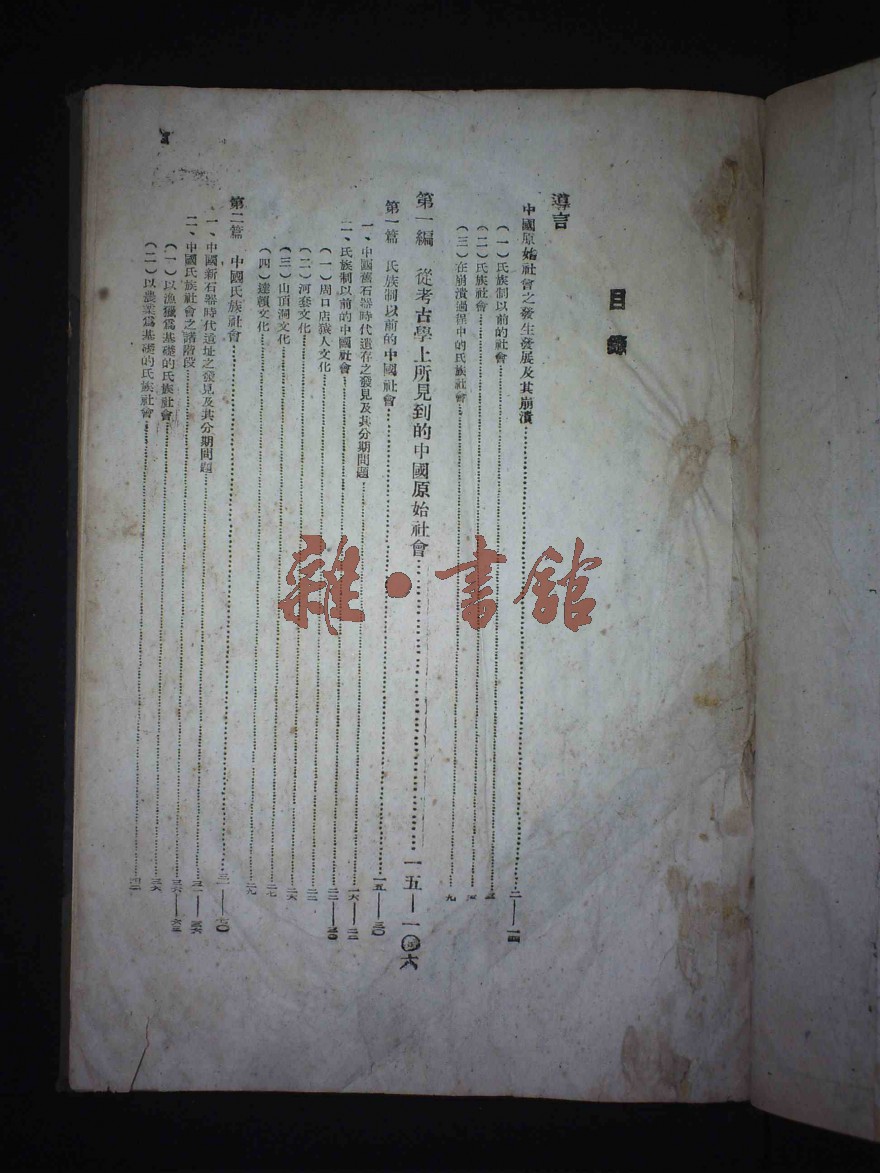 目錄
導言
中國原始社會之發生發展及其崩潰……二——一四
（一）氏族制以前的社會……
（二）氏族社會……
（三）在崩潰過程中的氏族社會……九
第一編 從考古學上所見到的中國原始社會……一五——一〇六
第一篇 氏族制以前的中國社會……一五——三〇
一、中國舊石器時代遺存之發見及其分期問題……一六——二二
二、氏族制以前的中國社會……二二——三〇
（一）周口店猿人文化……二二
（二）河套文化……二六
（三）山頂洞文化……二七
（四）達賴文化……二九
第二篇 中國氏族社會……三一——
一、中國新石器時代遺址之發見及其分期問題……三一——三六
二、中國氏族社會之諸階段……三六——六三
（一）以漁獵爲基礎的氏族社會……三六
（二）以農業爲基礎的氏族社會……
雜·書館